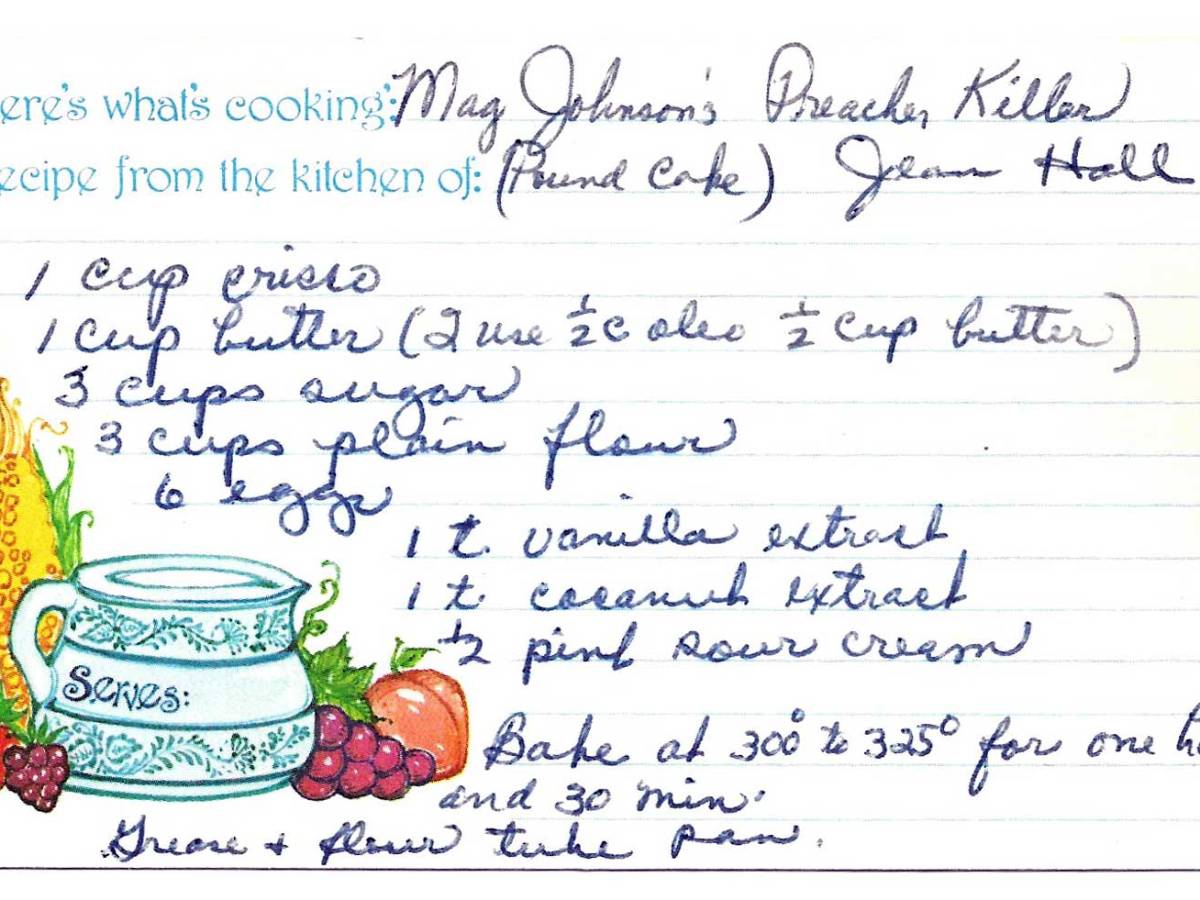 ere's what's cooking: Mag Johnson's Preacher Killer
ecipe from the kitchen of: (Pound Cake) Jean Hall
1 cup crisco
1 cup butter (I use ½ c oleo ½ cup butter)
3 cups sugar
3 cups plain flour
6 eggs
1 t. vanilla extract
1 t. cocanut extract
½ pint sour cream
Serves:
Bake at 300° to 325° for one h
and 30 min.
Grease + flour tube pan.